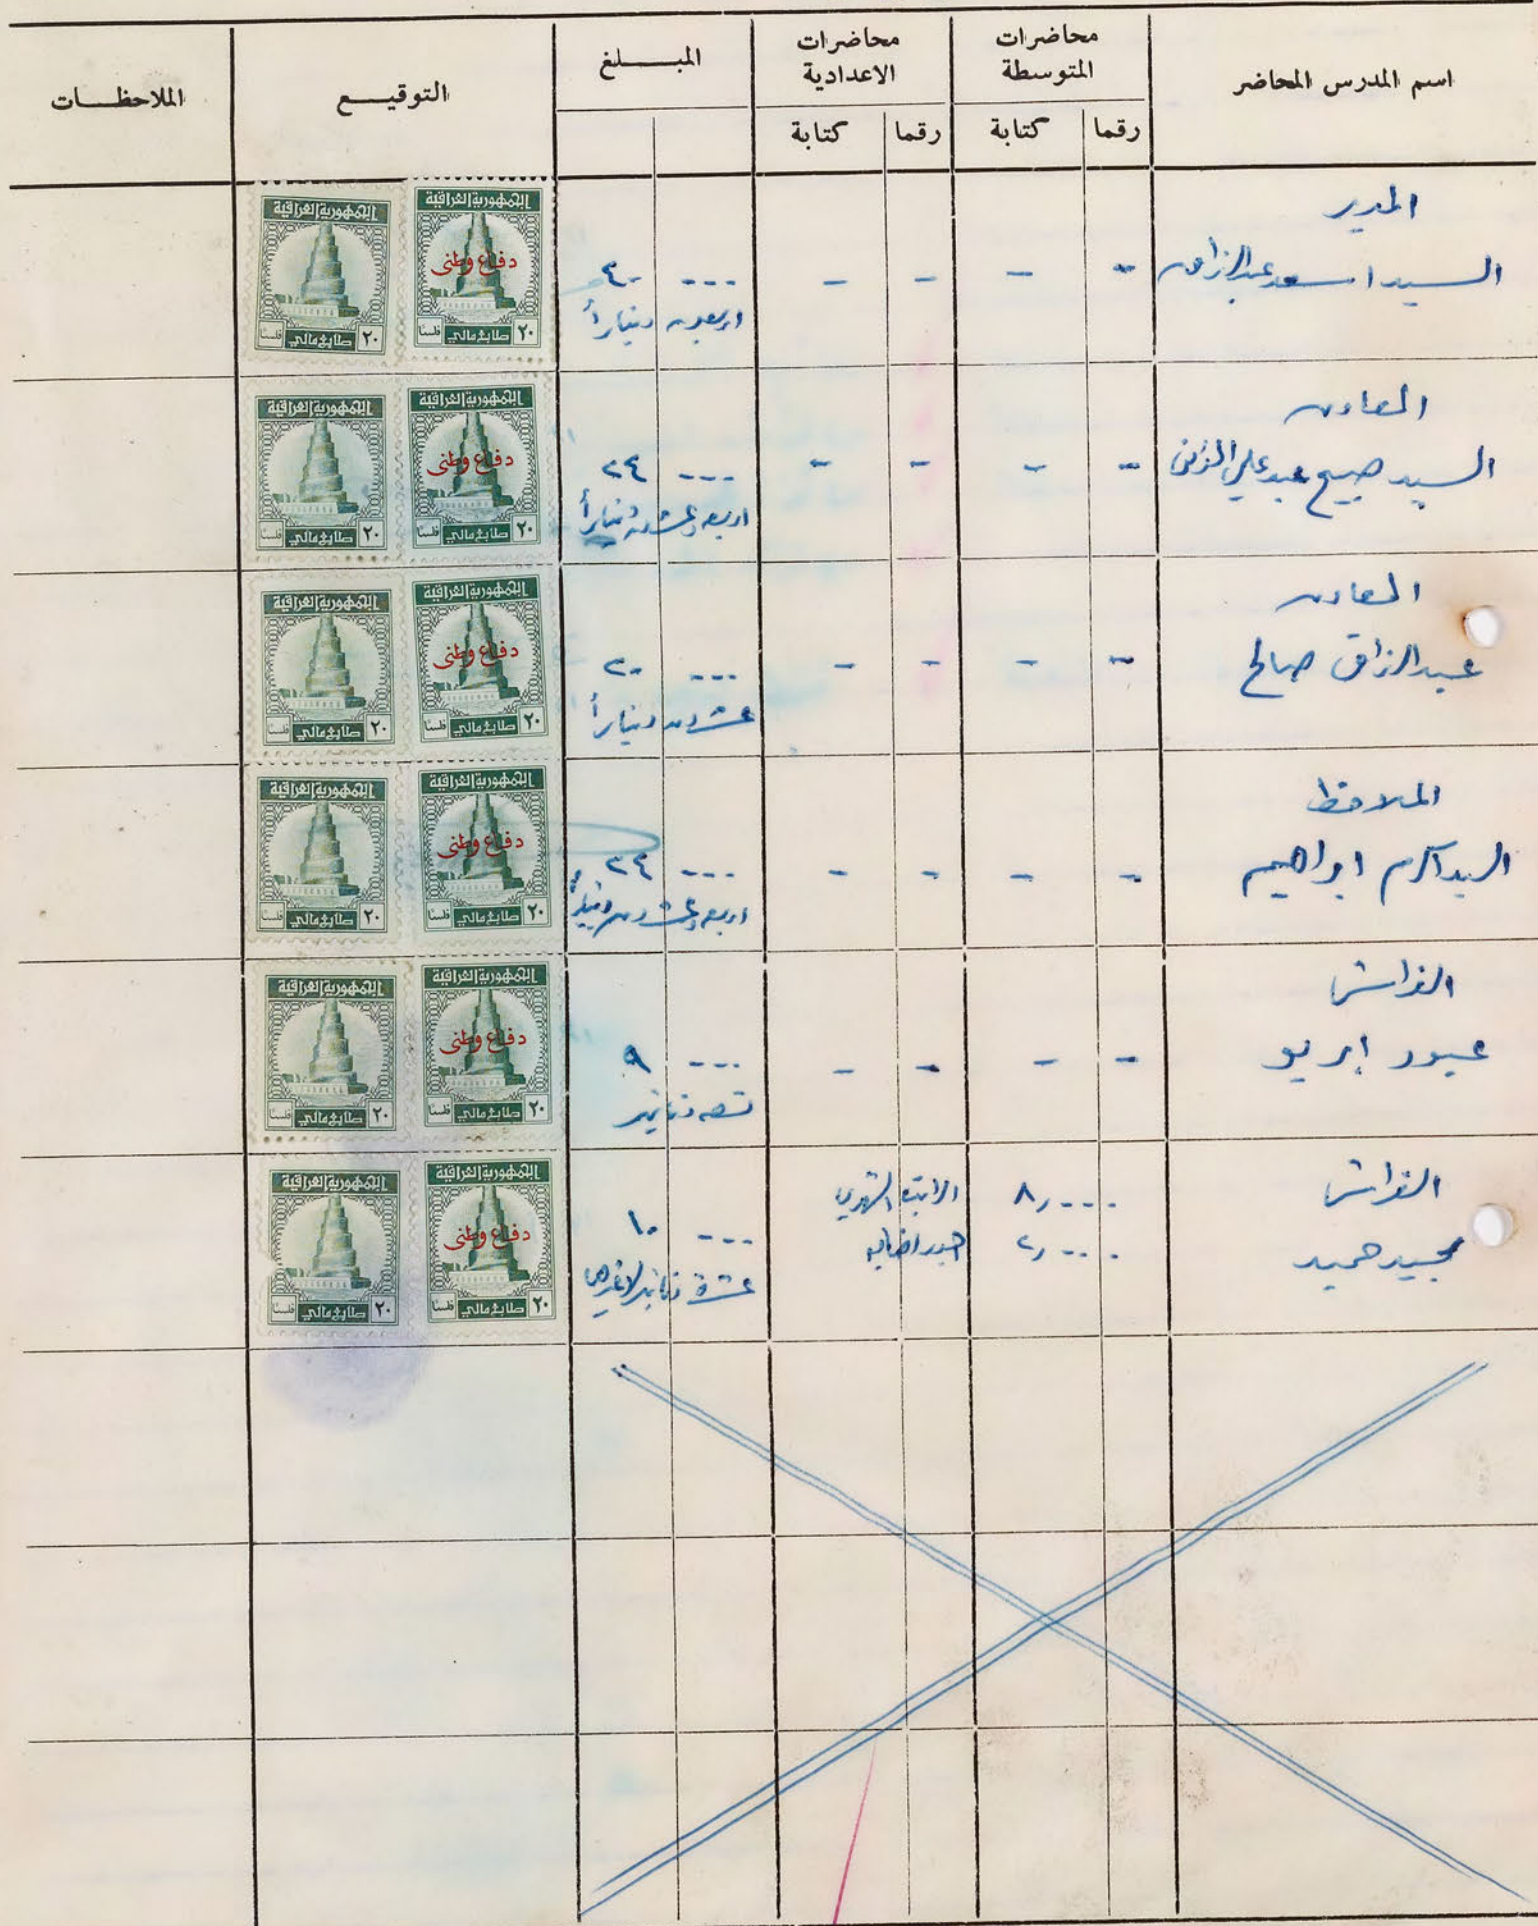 اسم المدرس المحاضر
محاضرات المتوسطة
محاضرات الاعدادية
المبـــلغ
التوقيـــع
الملاحظـــات
رقما
كتابة
رقما
كتابة
المدير
السيد اسعد عبدالرزاق
- - - - ... ٤٠
اربعون ديناراً
الجمهورية العراقية
دفاع وطني
٢٠ طابع مالي فلسا
الجمهورية العراقية
٢٠ طابع مالي فلسا
المعاون
السيد صبيح عبد علي
- - - - ... ٢٤
اربعه وعشرون ديناراً
الجمهورية العراقية
دفاع وطني
٢٠ طابع مالي فلسا
الجمهورية العراقية
٢٠ طابع مالي فلسا
المعاون
عبدالرزاق صالح
- - - - ... ٢٠
عشرون ديناراً
الجمهورية العراقية
دفاع وطني
٢٠ طابع مالي فلسا
الجمهورية العراقية
٢٠ طابع مالي فلسا
الملاحظ
السيد اكرم ابراهيم
- - - - ... ٢٤
اربعه وعشرون ديناراً
الجمهورية العراقية
دفاع وطني
٢٠ طابع مالي فلسا
الجمهورية العراقية
٢٠ طابع مالي فلسا
الفراش
عبود
- - - - ... ٩
تسعه دنانير
الجمهورية العراقية
دفاع وطني
٢٠ طابع مالي فلسا
الجمهورية العراقية
٢٠ طابع مالي فلسا
الفراش
مجيد حميد
٨,... الراتب الشهري
٢,... اجور اضافيه
... ١٠
عشرة دنانير لاغيرها
الجمهورية العراقية
دفاع وطني
٢٠ طابع مالي فلسا
الجمهورية العراقية
٢٠ طابع مالي فلسا